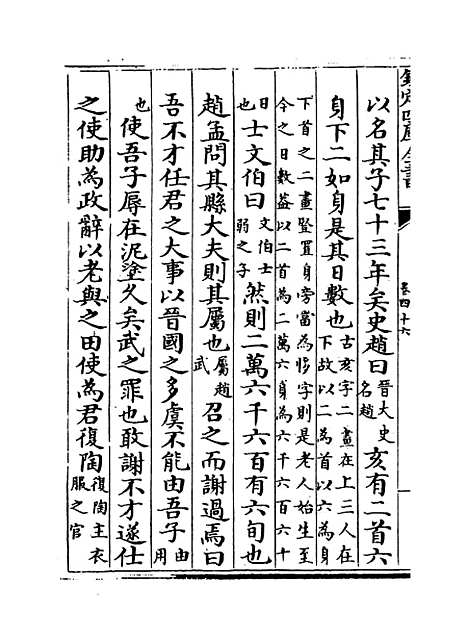 欽定四庫全書
卷四十六
以名其子七十三年矣史趙曰晉大史名趙亥有二首六
身下二如身是其日數也古亥字二畫在上三人在下故以二為首以六為身
下首之二畫豎置身旁當為字則是老人始生至
今之日數蓋以二首為二萬六身為六千六百六十
日也士文伯曰文伯士弱之子然則二萬六千六百有六旬也
趙孟問其縣大夫則其屬也屬趙武召之而謝過焉曰
吾不才任君之大事以晉國之多虞不能由吾子由用
也使吾子辱在泥塗久矣武之罪也敢謝不才遂仕
之使助為政辭以老與之田使為君復陶復陶主衣服之官